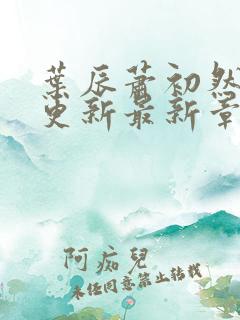 葉辰蕭初然
更新最新章
阿痴兒
未经同意禁止转载